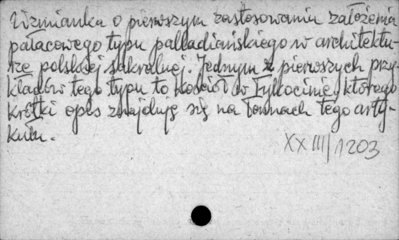 Wzmianka o pierwszym zastosowaniu założenia
pałacowego typu palladiańskiego w architektu-
rze polskiej sakralnej. Jednym z pierwszych przy-
kładów tego typu to kościół w Tykocinie, którego
krótki opis znajduje się na łamach tego arty-
kułu.
XXIII/1203